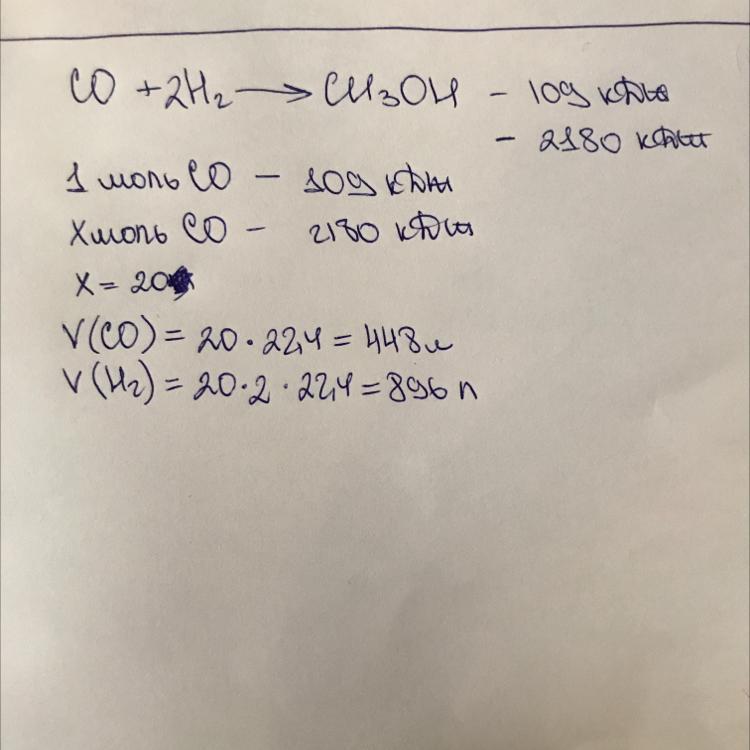 CO + 2H₂ → CH₃OH - 109 кДж
- 2180 кДж
1 моль CO - 109 кДж
X моль CO - 2180 кДж
X = 20
V(CO) = 20 · 22,4 = 448 л
V(H₂) = 20 · 2 · 22,4 = 896 л